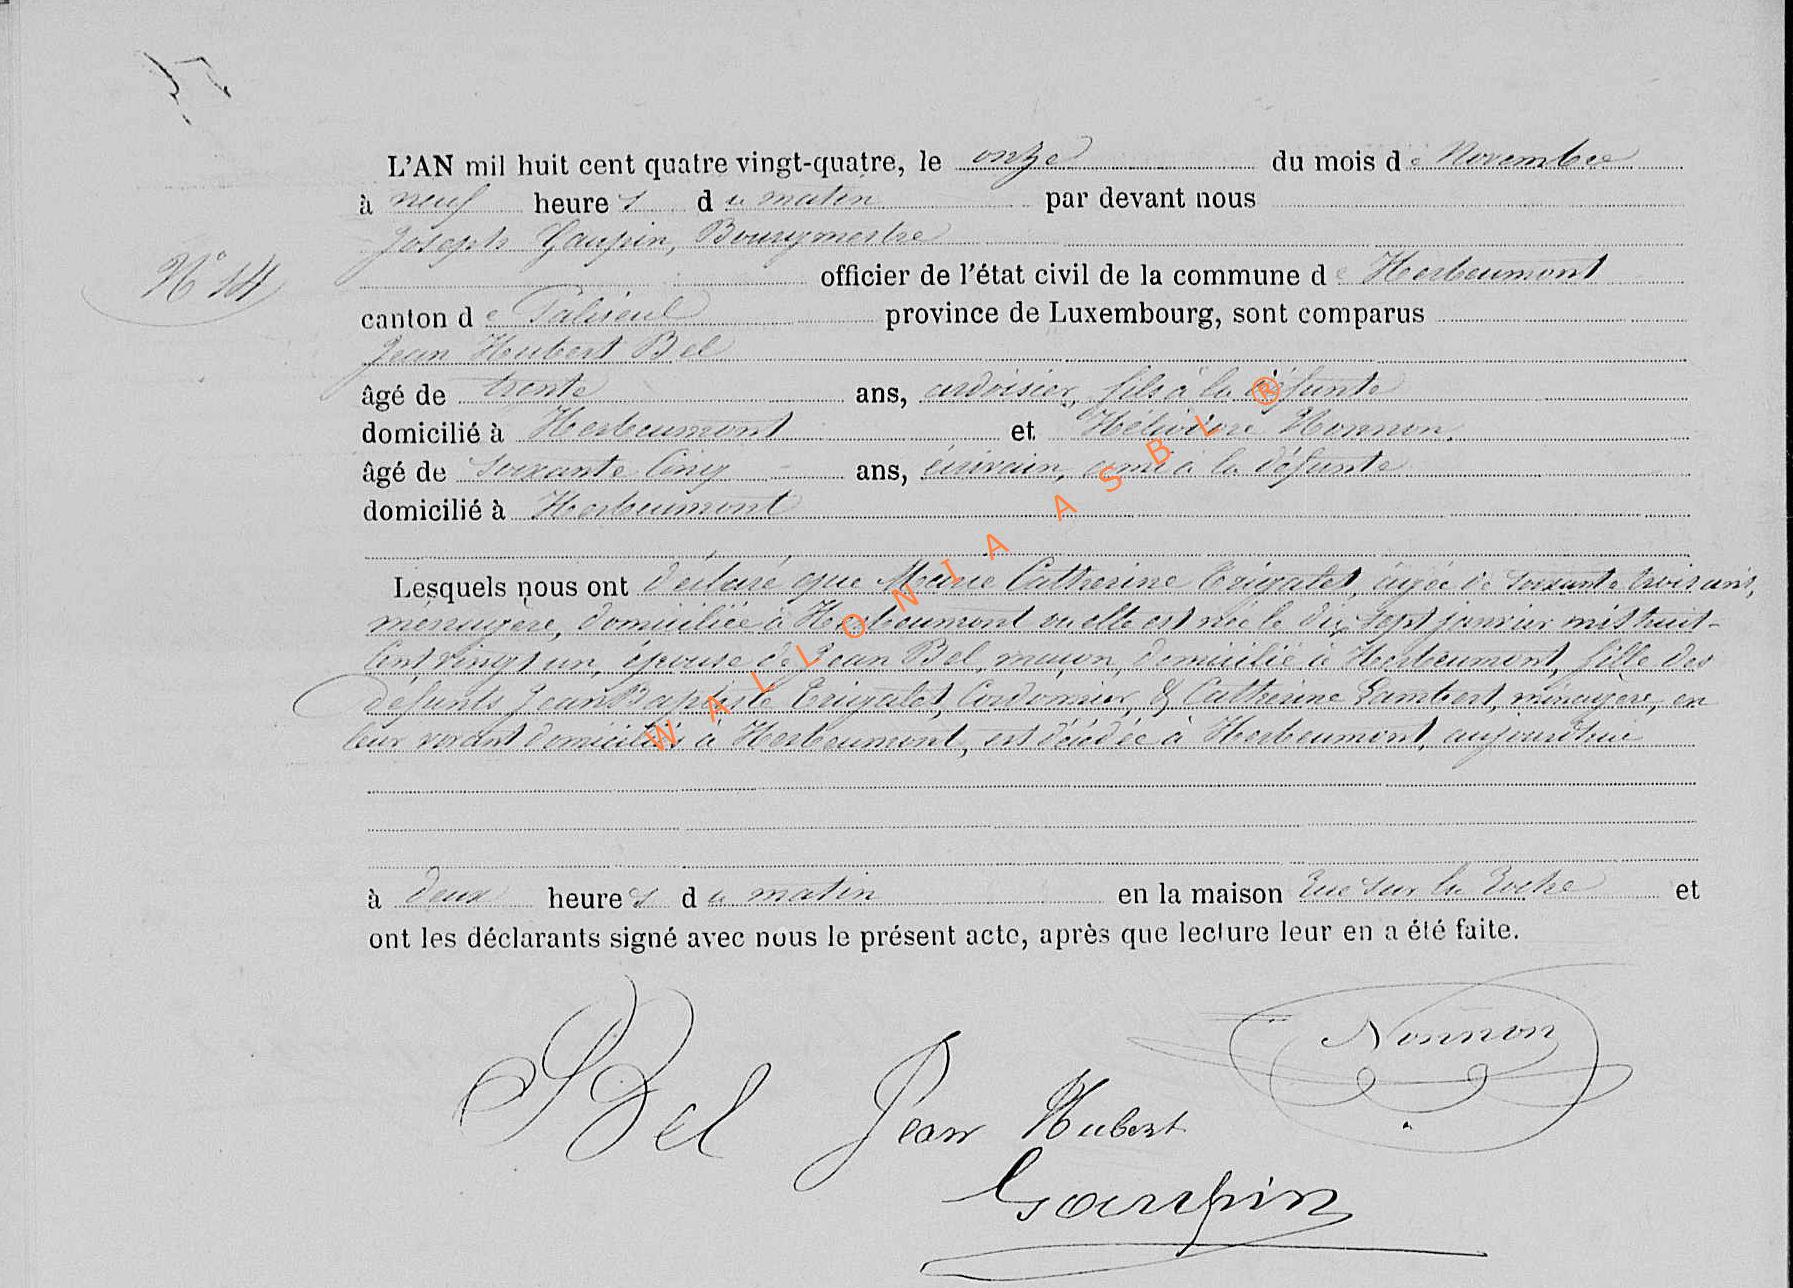 L'AN mil huit cent quatre vingt-quatre, le onze du mois de Novembre
à neuf heures du matin par devant nous
Joseph Gaupin, Bourgmestre
N° 14
officier de l'état civil de la commune de Herbeumont
canton de Paliseul province de Luxembourg, sont comparus
Jean Hubert Bel
âgé de trente ans, ardoisier, fils à la défunte
domicilié à Herbeumont et Hélidore Nonnon,
âgé de soixante cinq ans, écrivain, ami à la défunte
domicilié à Herbeumont
Lesquels nous ont déclaré que Marie Catherine Trigalet, âgée de soixante trois ans,
ménagère, domiciliée à Herbeumont où elle est née le dix sept janvier mil huit-
cent vingt un, épouse de Jean Bel, maçon, domicilié à Herbeumont, fille des
défunts Jean Baptiste Trigalet, Cordonnier, & Catherine Lambert, ménagère, en
leur vivant domiciliés à Herbeumont, est décédée à Herbeumont, aujourd'hui
à deux heures du matin en la maison rue sur la Roche et
ont les déclarants signé avec nous le présent acte, après que lecture leur en a été faite.
Nonnon
Bel Jean Hubert
Gaupin
WALLONIA ASBL ®